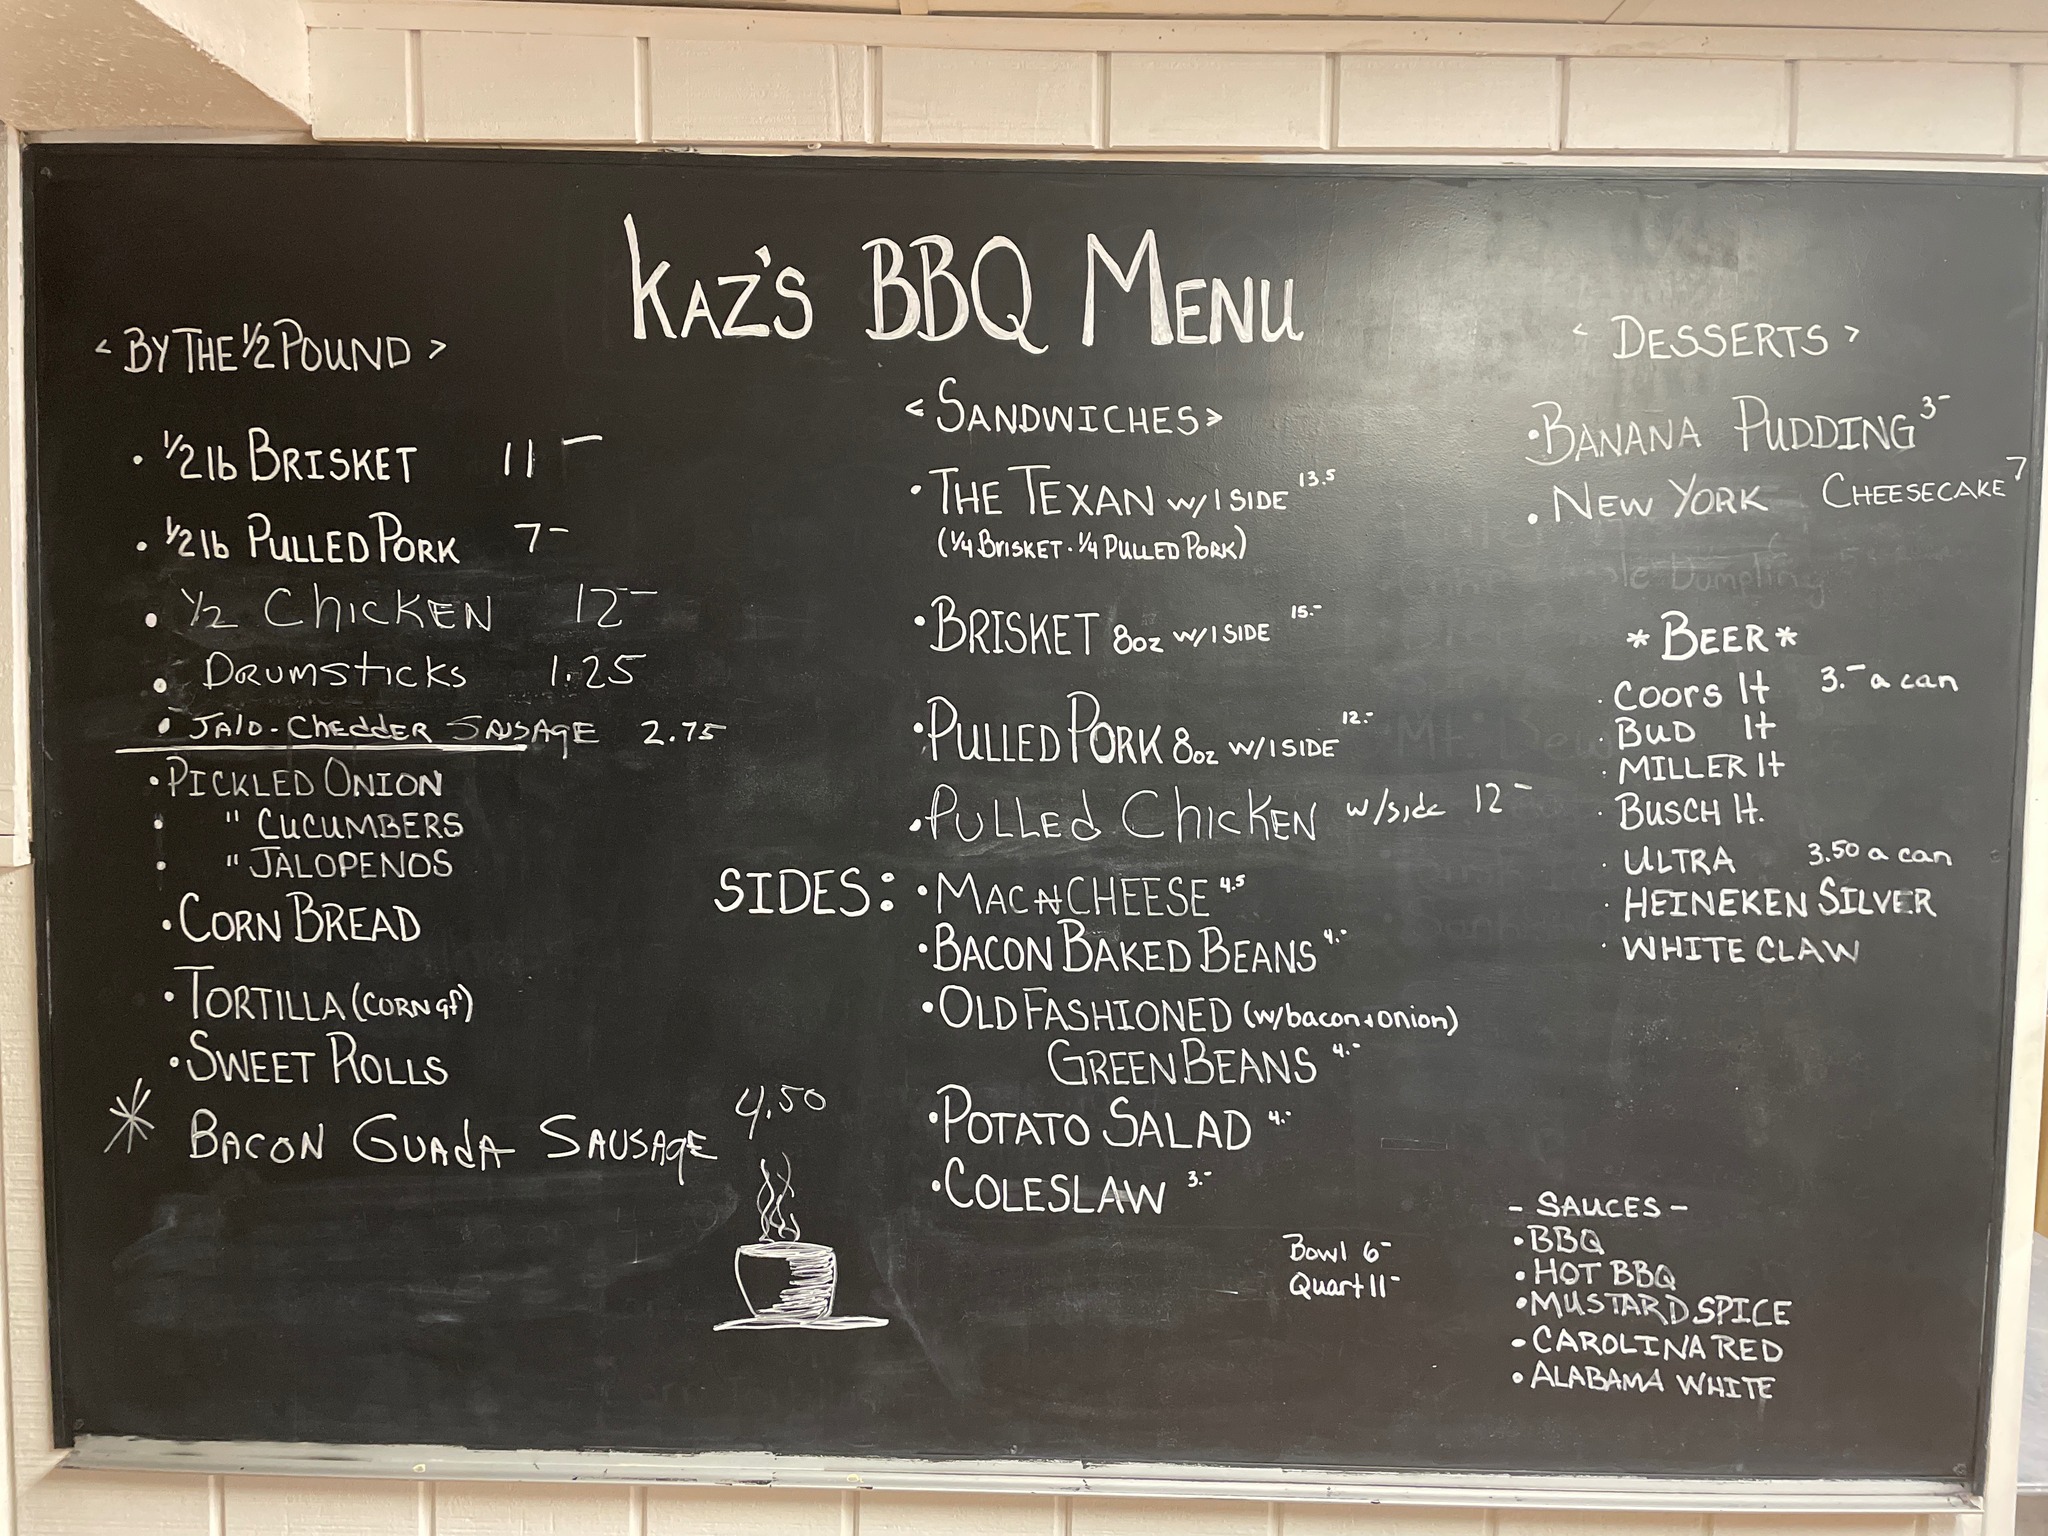 KAZ'S BBQ MENU
< BY THE 1/2 POUND >
• 1/2 lb BRISKET 11-
• 1/2 lb PULLED PORK 7-
• 1/2 CHICKEN 12-
• DRUMSTICKS 1.25
• JALO-CHEDDER SAUSAGE 2.75
• PICKLED ONION
• " CUCUMBERS
• " JALOPENOS
• CORN BREAD
• TORTILLA (CORN gf)
• SWEET ROLLS
* BACON GUADA SAUSAGE 4.50
< SANDWICHES >
• THE TEXAN W/1 SIDE 13.5
(1/4 BRISKET • 1/4 PULLED PORK)
• BRISKET 8oz W/1 SIDE 15.-
• PULLED PORK 8oz W/1 SIDE 12.-
• PULLED CHICKEN w/side 12-
SIDES: • MAC N CHEESE 4.5
• BACON BAKED BEANS 4.-
• OLD FASHIONED (w/bacon + onion)
GREEN BEANS 4.-
• POTATO SALAD 4.-
• COLESLAW 3.-
Bowl 6-
Quart 11-
< DESSERTS >
• BANANA PUDDING 3-
• NEW YORK CHEESECAKE 7
Dumpling
* BEER *
• COORS lt 3.- a can
• BUD lt
• MILLER lt
• BUSCH lt.
• ULTRA 3.50 a can
• HEINEKEN SILVER
• WHITE CLAW
- SAUCES -
• BBQ
• HOT BBQ
• MUSTARD SPICE
• CAROLINA RED
• ALABAMA WHITE